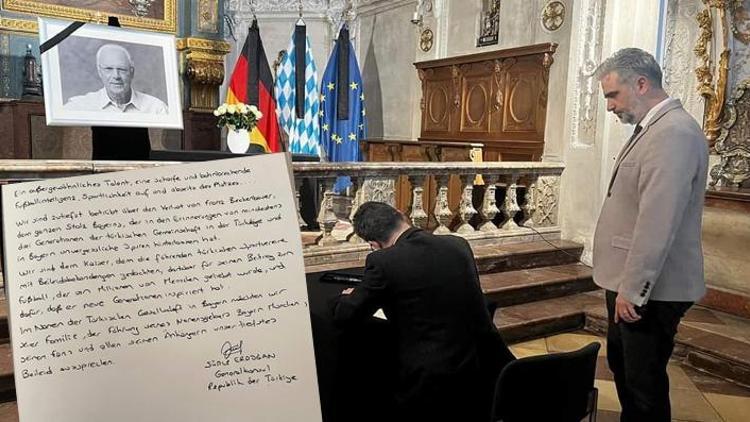 Ein außergewöhnliches Talent, eine scharfe und bahnbrechende
Fußballintelligenz, Sportlichkeit auf und abseits des Platzes...
Wir sind zutiefst betrübt über den Verlust von Franz Beckenbauer,
dem ganzen Stolz Bayerns, der in den Erinnerungen von mindestens
drei Generationen der türkischen Gemeinschaft in der Türkiye und
in Bayern unvergessliche Spuren hinterlassen hat.
Wir sind dem Kaiser, dem die führenden türkischen Sportvereine
mit Beileidsbekundungen gedachten, dankbar für seinen Beitrag zum
Fußball, der von Millionen von Menschen geliebt wurde, und
dafür, daß er neue Generationen inspiriert hat.
Im Namen der Türkischen Gesellschaft in Bayern möchten wir
seiner Familie, der Führung seines Bayern München,
seinen Fans und allen seinen Anhängern unser tiefstes
Beileid auszusprechen.
ERDOĞAN
Generalkonsul
Republik der Türkiye